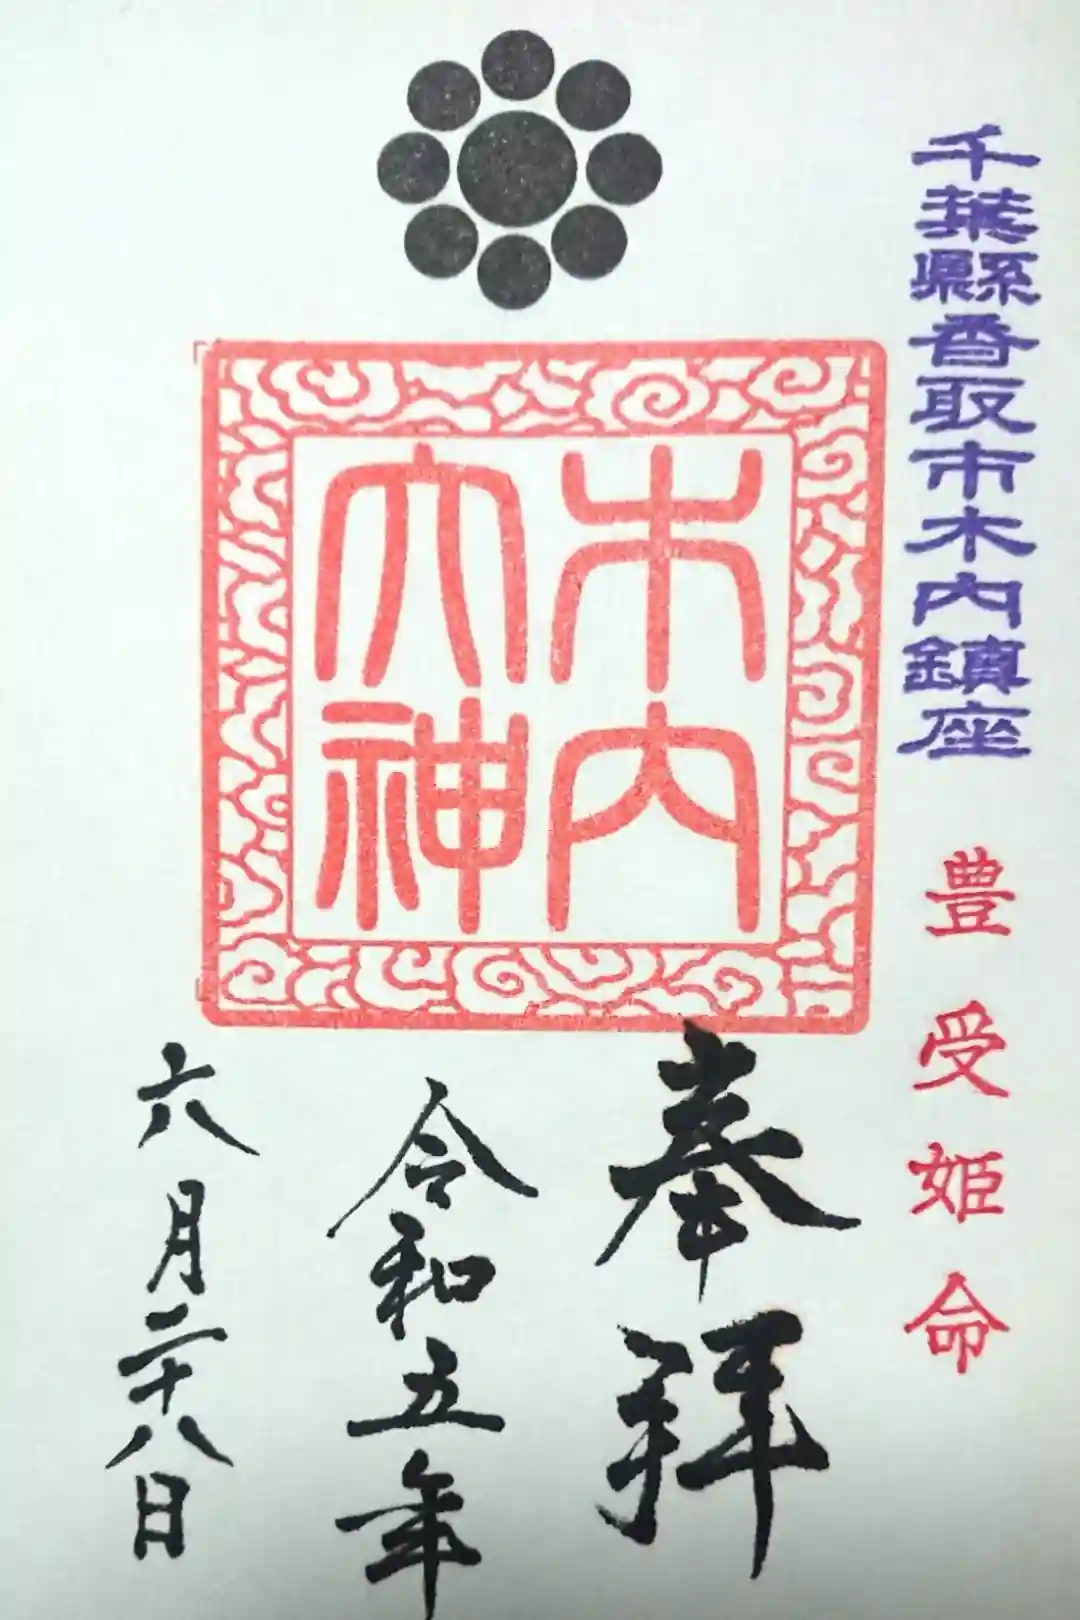 千葉縣香取市木内鎮座
豊受姫命
木内
大神
奉拝
令和五年
六月二十八日